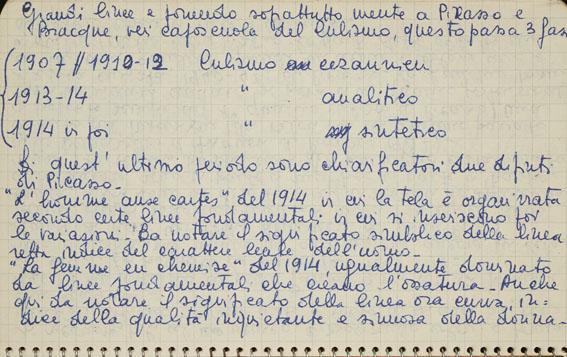 Grandi linee e ponendo soprattutto mente a Picasso e
Bracque, veri caposcuola del Cubismo, questo passa 3 fasi
1907 // 1910-12 Cubismo cezannien
1913-14 " analitico
1914 in poi " sintetico
Di quest'ultimo periodo sono chiarificatori due dipinti
di Picasso -
"L'homme aux cartes" del 1914 in cui la tela è organizzata
secondo certe linee fondamentali in cui si inseriscono poi
le variazioni. Da notare il significato simbolico della linea
retta indice del carattere leale dell'uomo -
"La femme en chemise" del 1914, ugualmente dominato
da linee fondamentali che creano l'ossatura - Anche
qui da notare il significato della linea ora curva, in-
dice della qualità inquietante e sinuosa della donna -